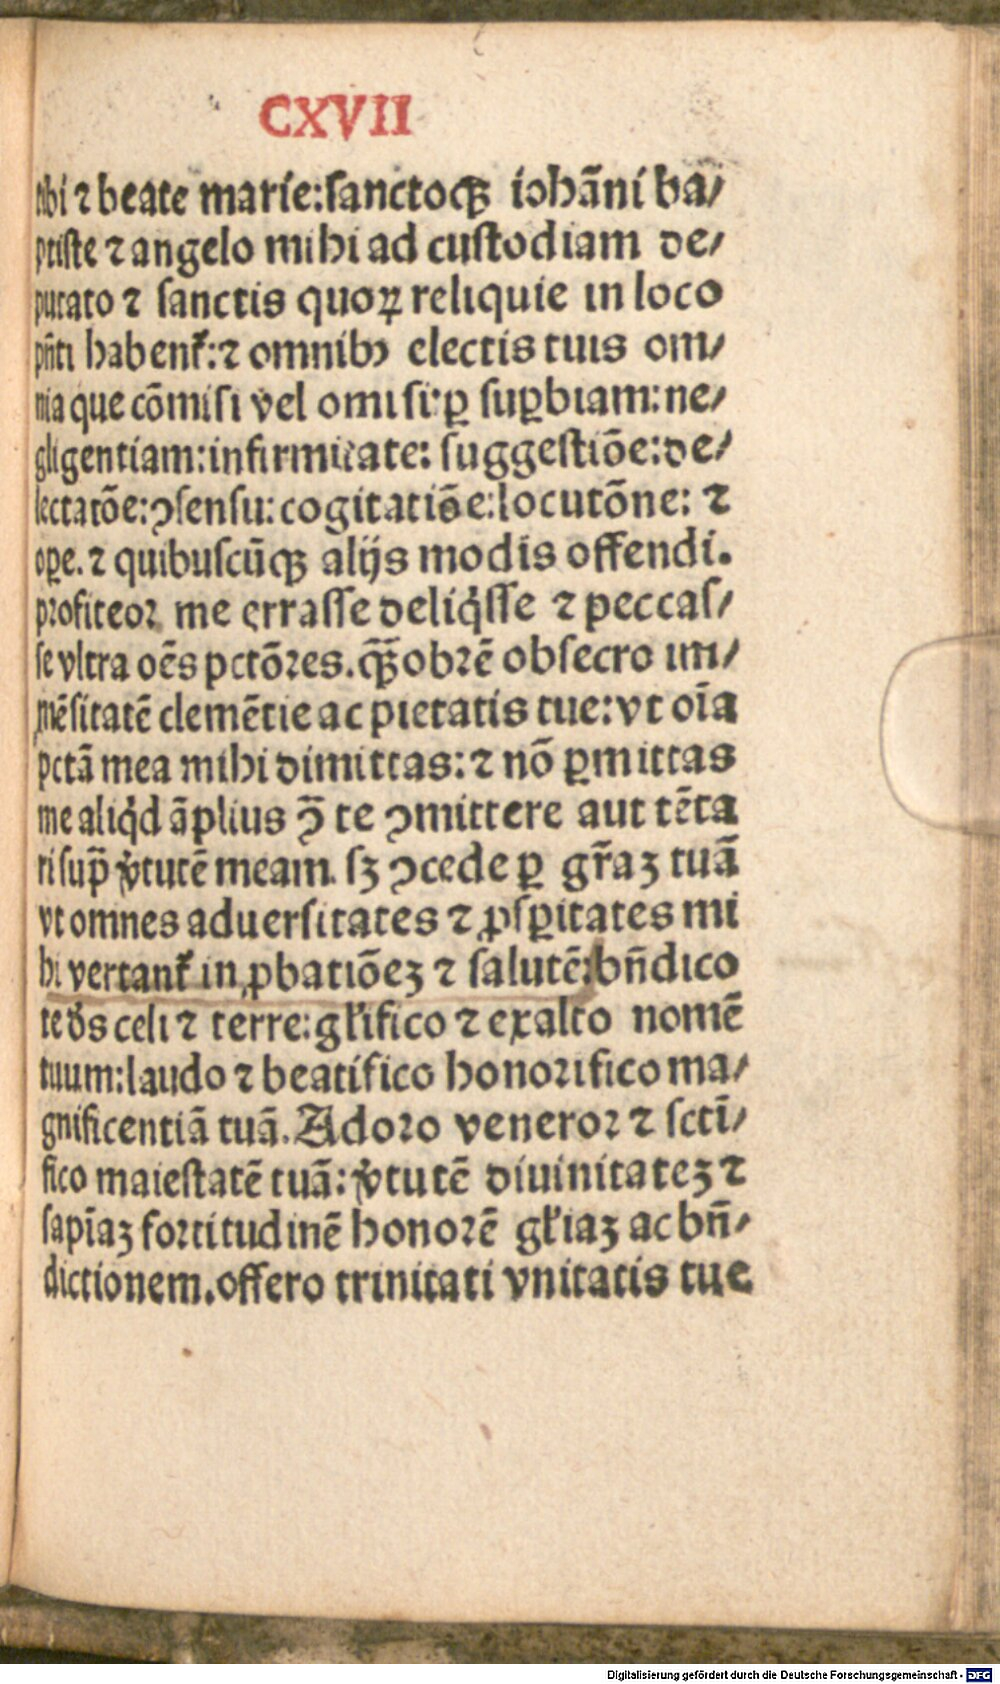 CXVII
tibi ⁊ beate marie:sanctoqꝫ iohāni ba/
ptiste ⁊ angelo mihi ad custodiam de/
putato ⁊ sanctis quoꝝ reliquie in loco
pn̄ti habent᷑:⁊ omnibꝰ electis tuis om/
nia que cōmisi vel omisi:ꝑ suꝑbiam:ne/
gligentiam:infirmitate: suggestiōe:de/
lectatōe:ꝯsensu:cogitatiōe:locutōne: ⁊
oꝑe.⁊ quibuscūqꝫ alijs modis offendi.
profiteor me errasse deliq̇sse ⁊ peccas/
se vltra oēs pctōres.qꝫ̄obrē obsecro im/
mēsitatē clemētie ac pietatis tue:vt oīa
pctā mea mihi dimittas:⁊ nō ꝑmittas
me aliq̇d āplius ꝯ̄ te ꝯmittere aut tēta
ri sup̄ v̓tutē meam. sꝫ ꝯcede ꝑ gr̄aꝫ tuā
vt omnes aduersitates ⁊ ꝓsꝑitates mi
hi vertant᷑ in ꝓbatiōeꝫ ⁊ salutē:bn̄dico
te dꝰs celi ⁊ terre:gl̓ifico ⁊ exalto nomē
tuum:laudo ⁊ beatifico honorifico ma/
gnificentiā tuā.Adoro veneror ⁊ sctī/
fico maiestatē tuā:v̓tutē diuinitateꝫ ⁊
sapīaꝫ fortitudinē honorē gl̓iaꝫ ac bn̄/
dictionem.offero trinitati vnitatis tue
Digitalisierung gefördert durch die Deutsche Forschungsgemeinschaft - DFG